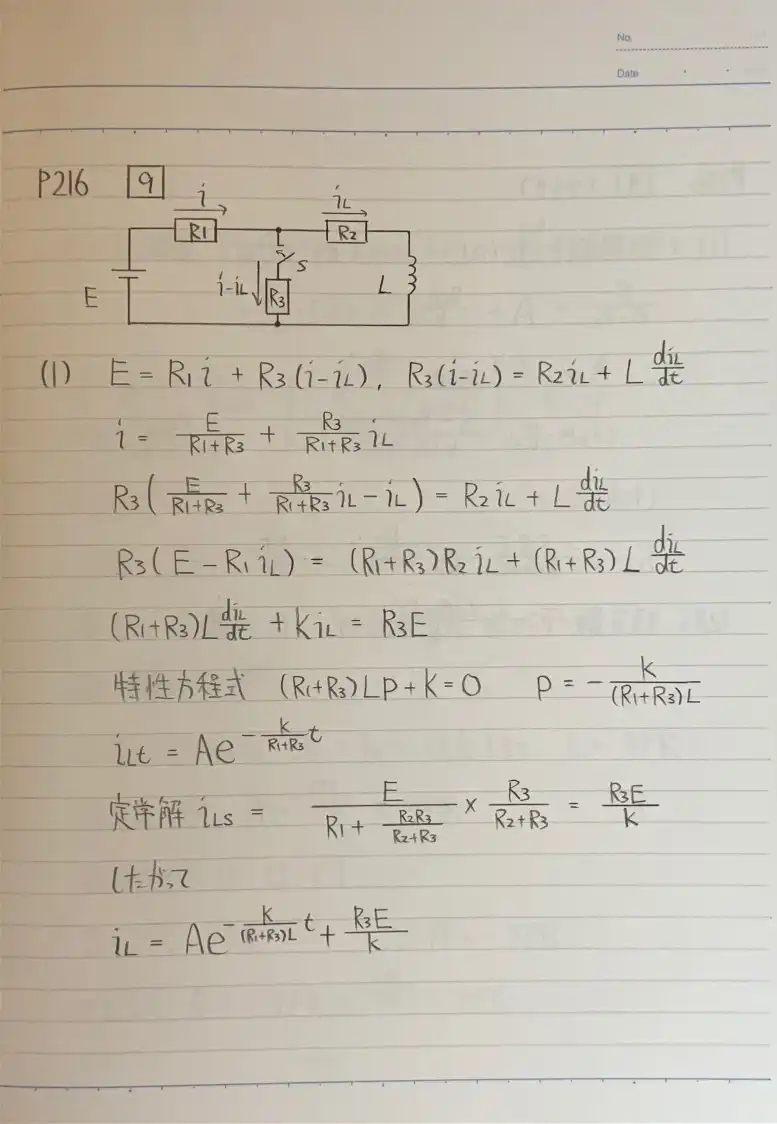 No.
Date
P216 9
i iL
R1 R2
S
i-iL R3 L
E
(1) E = R1 i + R3 (i-iL), R3(i-iL) = R2 iL + L diL/dt
i = E/(R1+R3) + R3/(R1+R3) iL
R3( E/(R1+R3) + R3/(R1+R3) iL - iL ) = R2 iL + L diL/dt
R3( E - R1 iL ) = (R1+R3)R2 iL + (R1+R3) L diL/dt
(R1+R3)L diL/dt + k iL = R3E
特性方程式 (R1+R3)LP + k = 0 P = - k/((R1+R3)L)
iLt = Ae^(- k/(R1+R3) t)
定常解 iLs = E/(R1 + R2R3/(R2+R3)) × R3/(R2+R3) = R3E/k
したがって
iL = Ae^(- k/((R1+R3)L) t) + R3E/k